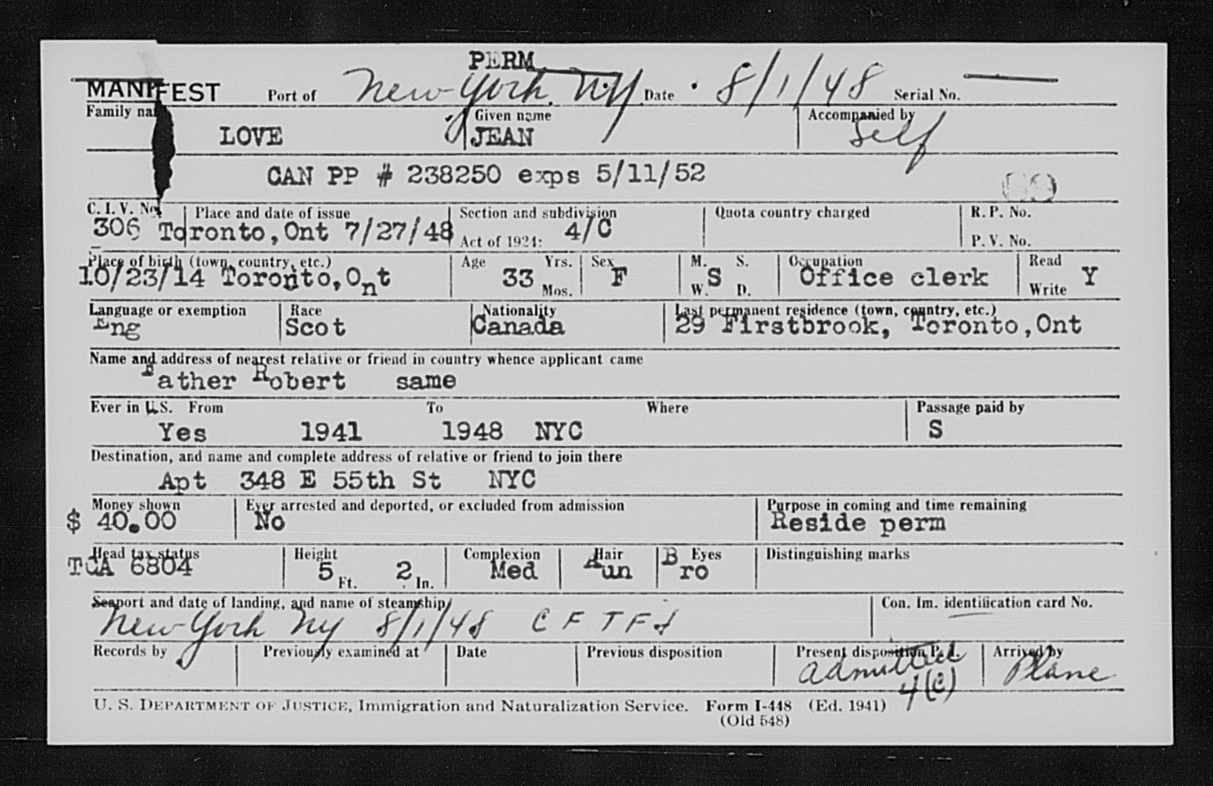 PERM
MANIFEST Port of New York, NY Date 8/1/48 Serial No.
Family name Given name Accompanied by
LOVE JEAN Self
CAN PP # 238250 exps 5/11/52
C. I. V. No. Place and date of issue Section and subdivision Quota country charged R. P. No.
306 Toronto, Ont 7/27/48 Act of 1924: 4/C P. V. No.
Place of birth (town, country, etc.) Age Yrs. Sex M. S. Occupation Read
10/23/14 Toronto, Ont 33 Mos. F S W. D. Office clerk Write Y
Language or exemption Race Nationality Last permanent residence (town, country, etc.)
Eng Scot Canada 29 Firstbrook, Toronto, Ont
Name and address of nearest relative or friend in country whence applicant came
Father Robert same
Ever in U.S. From To Where Passage paid by
Yes 1941 1948 NYC S
Destination, and name and complete address of relative or friend to join there
Apt 348 E 55th St NYC
Money shown Ever arrested and deported, or excluded from admission Purpose in coming and time remaining
$ 40.00 No Reside perm
Head tax status Height Complexion Hair Eyes Distinguishing marks
TCA 6804 5 Ft. 2 In. Med Aun Bro
Seaport and date of landing, and name of steamship Con. Im. identification card No.
New York NY 8/1/48 C F T F J
Records by Previously examined at Date Previous disposition Present disposition P.I. Arrived by
admitted Plane
4(C)
U. S. DEPARTMENT OF JUSTICE, Immigration and Naturalization Service. Form I-448 (Ed. 1941)
(Old 548)